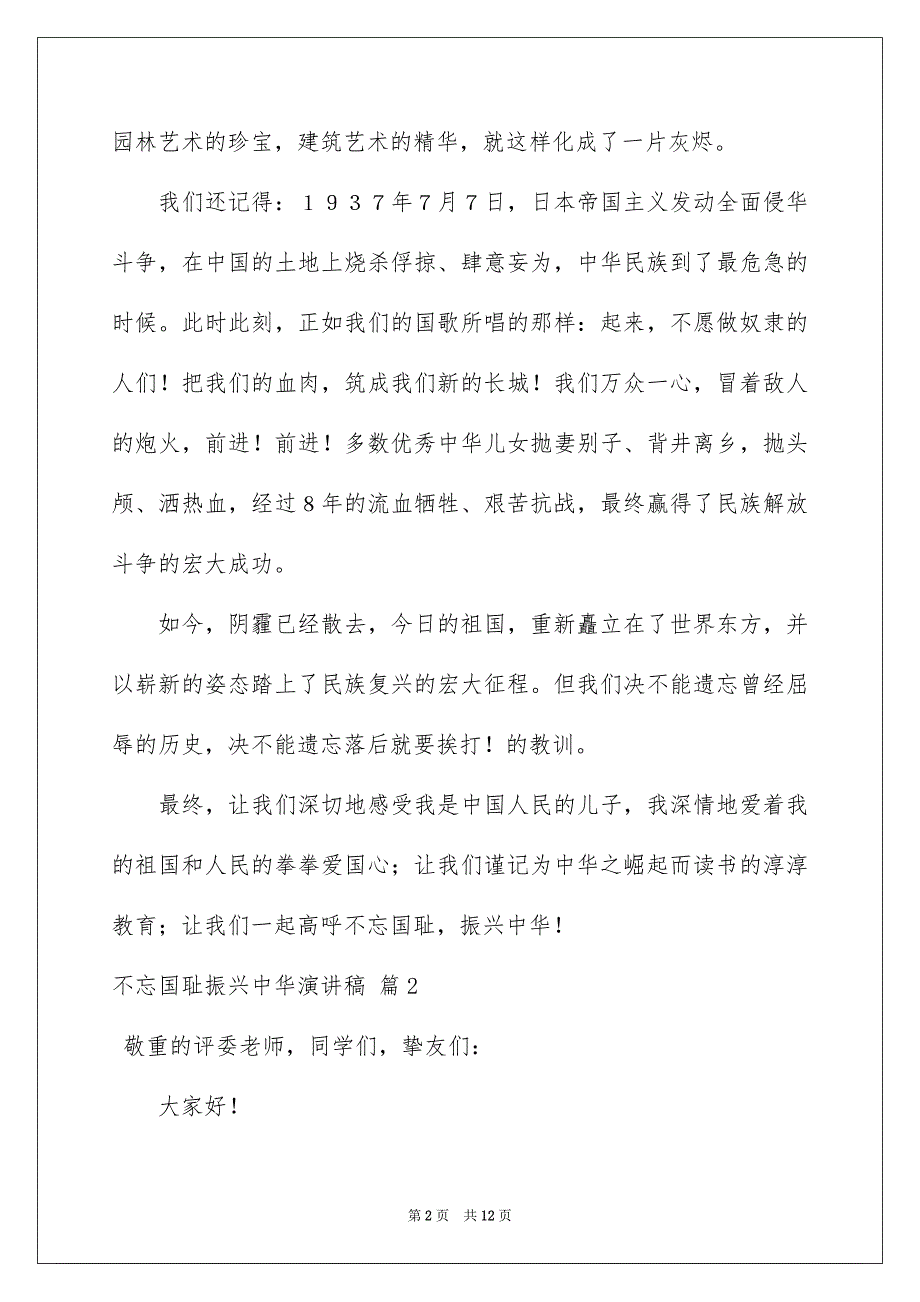 园林艺术的珍宝，建筑艺术的精华，就这样化成了一片灰烬。
我们还记得：１９３７年７月７日，日本帝国主义发动全面侵华
斗争，在中国的土地上烧杀俘掠、肆意妄为，中华民族到了最危急的
时候。此时此刻，正如我们的国歌所唱的那样：起来，不愿做奴隶的
人们！把我们的血肉，筑成我们新的长城！我们万众一心，冒着敌人
的炮火，前进！前进！多数优秀中华儿女抛妻别子、背井离乡，抛头
颅、洒热血，经过８年的流血牺牲、艰苦抗战，最终赢得了民族解放
斗争的宏大成功。
如今，阴霾已经散去，今日的祖国，重新矗立在了世界东方，并
以崭新的姿态踏上了民族复兴的宏大征程。但我们决不能遗忘曾经屈
辱的历史，决不能遗忘落后就要挨打！的教训。
最终，让我们深切地感受我是中国人民的儿子，我深情地爱着我
的祖国和人民的拳拳爱国心；让我们谨记为中华之崛起而读书的淳淳
教育；让我们一起高呼不忘国耻，振兴中华！
不忘国耻振兴中华演讲稿 篇２
敬重的评委老师，同学们，挚友们：
大家好！
第 2 页 共 12 页